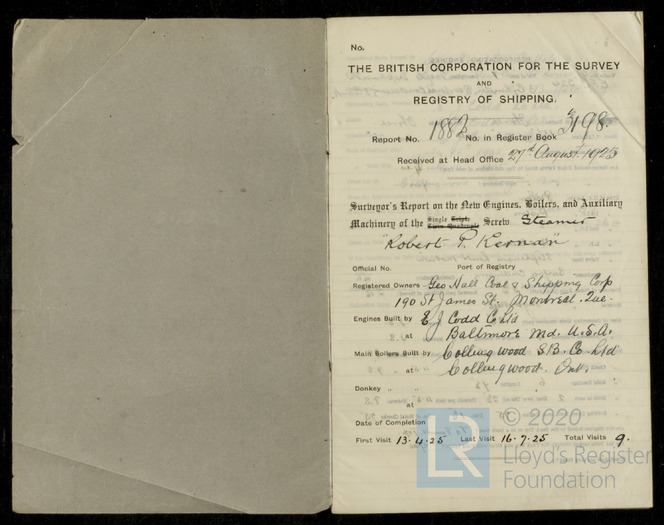 No.
THE BRITISH CORPORATION FOR THE SURVEY
AND
REGISTRY OF SHIPPING.
Report No. 1882 No. in Register Book 3198
Received at Head Office 27th August 1925
Surveyor's Report on the New Engines, Boilers, and Auxiliary
Machinery of the Single Triple Twin Quadruple Screw Steamer
"Robert P. Kernan"
Official No. Port of Registry
Registered Owners Geo Hall Coal & Shipping Corp
190 St James St. Montreal. Que.
Engines Built by E J Codd C Ltd
at Baltimore Md. U.S.A.
Main Boilers Built by Collingwood S.B. Co Ltd
at Collingwood. Ont.
Donkey " "
at
Date of Completion
First Visit 13.4.25 Last Visit 16.7.25 Total Visits 9.
© 2020
LR Lloyd's Register
Foundation